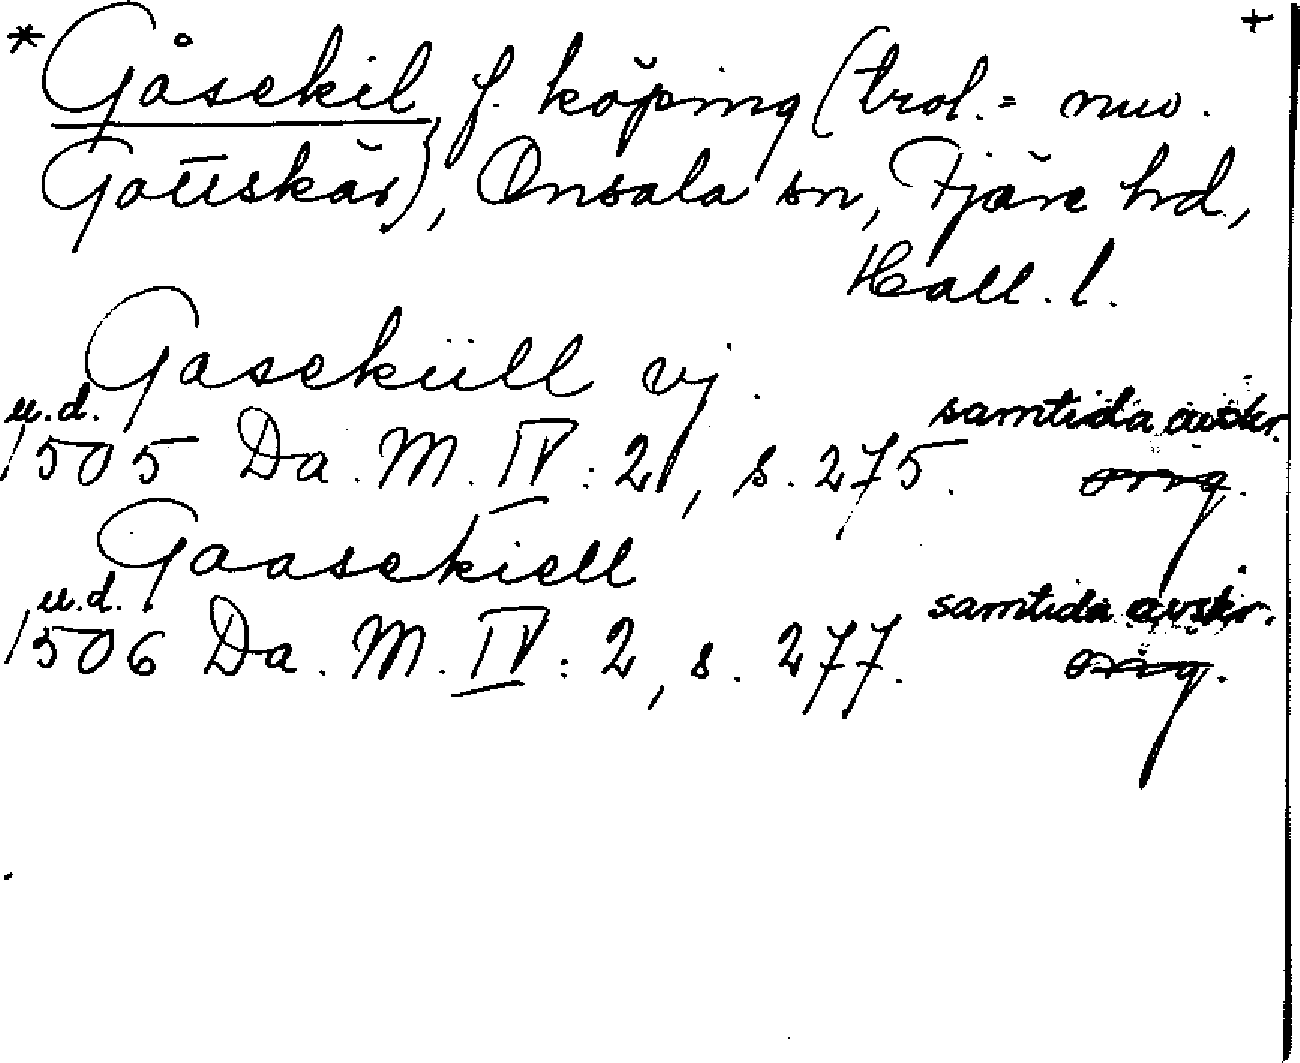 * Gåsekil, f. köping (trol. = nuv. +
Gottskär), Onsala sn, Fjäre hd,
Hall. l.
Gaseküll vj
u.d. samtida avskr.
1505 Da. M. IV : 2, s. 275. orig.
Gaasekiell
u.d. samtida avskr.
1506 Da. M. IV : 2, s. 277. orig.